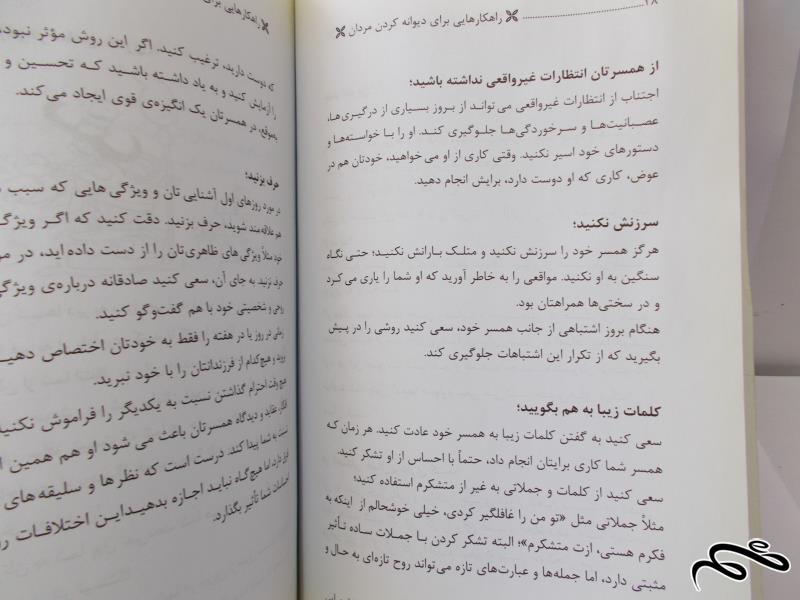 ۲۸ راهکارهایی برای دیوانه کردن مردان
از همسرتان انتظارات غیرواقعی نداشته باشید؛
اجتناب از انتظارات غیرواقعی می‌تواند از بروز بسیاری از درگیری‌ها،
عصبانیت‌ها و سرخوردگی‌ها جلوگیری کند. او را با خواسته‌ها و
دستورهای خود اسیر نکنید. وقتی کاری از او می‌خواهید، خودتان هم در
عوض، کاری که او دوست دارد، برایش انجام دهید.
سرزنش نکنید؛
هرگز همسر خود را سرزنش نکنید و متلک بارانش نکنید؛ حتی نگاه
سنگین به او نکنید. مواقعی را به خاطر آورید که او شما را یاری می‌کرد
و در سختی‌ها همراهتان بود.
هنگام بروز اشتباهی از جانب همسر خود، سعی کنید روشی را در پیش
بگیرید که از تکرار این اشتباهات جلوگیری کند.
کلمات زیبا به هم بگویید؛
سعی کنید به گفتن کلمات زیبا به همسر خود عادت کنید. هر زمان که
همسر شما کاری برایتان انجام داد، حتماً با احساس از او تشکر کنید.
سعی کنید از کلمات و جملاتی به غیر از متشکرم استفاده کنید؛
مثلاً جملاتی مثل «تو من را غافلگیر کردی، خیلی خوشحالم از اینکه به
فکرم هستی، ازت متشکرم»؛ البته تشکر کردن با جملات ساده تأثیر
مثبتی دارد، اما جمله‌ها و عبارت‌های تازه می‌تواند روح تازه‌ای به حال و
راهکارهایی برای
که دوست دارید، ترغیب کنید. اگر این روش مؤثر نبود،
را آزمایش کنید و به یاد داشته باشید که تحسین و
به‌موقع، در همسرتان یک انگیزه‌ی قوی ایجاد می‌کند.
حرف بزنید؛
در مورد روزهای اول آشنایی تان و ویژگی هایی که سبب
هم علاقه‌مند شوید، حرف بزنید. دقت کنید که اگر
خود مثلاً ویژگی های ظاهری‌تان را از دست داده اید، در
حرف نزنید به جای آن، سعی کنید صادقانه درباره‌ی
روحی و شخصیتی خود با هم گفت‌وگو کنید.
زمانی در روز یا در هفته را فقط به خودتان اختصاص
بروید و هیچ‌کدام از فرزندانتان را با خود نبرید.
هیچ وقت احترام گذاشتن نسبت به یکدیگر را فراموش
افکار، عقاید و دیدگاه همسرتان باعث می شود او هم همین
نسبت به شما پیدا کند. درست است که نظرها و سلیقه‌های
فرق دارد، اما هیچ‌گاه نباید اجازه بدهیداین اختلافات
احساسات شما تأثیر بگذارد.